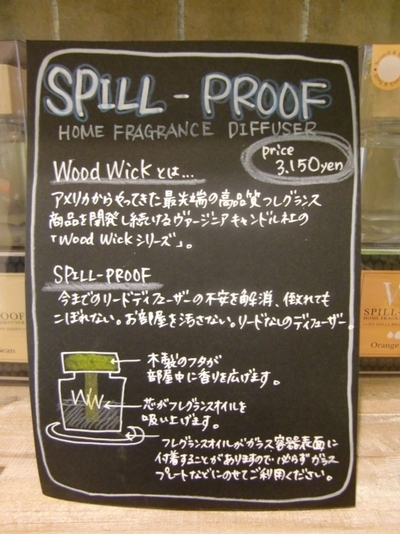 SPILL-PROOF
HOME FRAGRANCE DIFFUSER
price
3.150yen
Wood Wickとは...
アメリカからやってきた最先端の高品質フレグランス
商品を開発し続けるヴァージニアキャンドル社の
「Wood Wickシリーズ」。
SPILL-PROOF
今までのリードディフューザーの不安を解消、倒れても
こぼれない。お部屋を汚さない。リードなしのディフューザー。
木製のフタが
部屋中に香りを広げます。
WW
芯がフレグランスオイルを
吸い上げます。
フレグランスオイルがガラス容器表面に
付着することがありますので必らずガラス
プレートなどにのせてご利用ください。
SPILL-
Orange